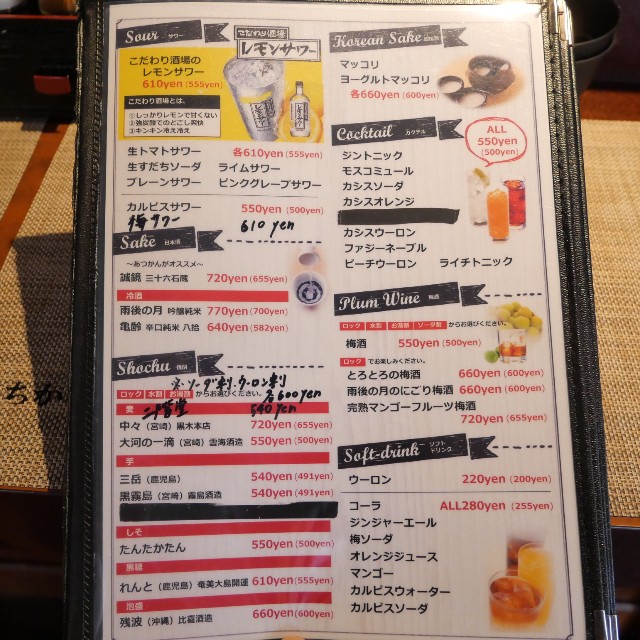 Sour サワー
こだわり酒場
レモンサワー
こだわり酒場の
レモンサワー
610yen (555yen)
こだわり酒場とは、
①しっかりレモンで甘くない
②強炭酸でのどごし爽快
③キンキン冷え冷え
生トマトサワー 各610yen (555yen)
生すだちソーダ ライムサワー
プレーンサワー ピンクグレープサワー
カルピスサワー 550yen (500yen)
梅サワー 610yen
Sake 日本酒
～あつかんがオススメ～
誠鏡 三十六石蔵 720yen (655yen)
冷酒
雨後の月 吟醸純米 770yen (700yen)
亀齢 辛口純米 八拾 640yen (582yen)
Shochu 焼酎
※ソーダ割、ウーロン割
各600yen
ロック 水割 お湯割 からお選びください。
麦 二階堂 540yen
中々 (宮崎) 黒木本店 720yen (655yen)
大河の一滴 (宮崎) 雲海酒造 550yen (500yen)
芋
三岳 (鹿児島) 540yen (491yen)
黒霧島 (宮崎) 霧島酒造 540yen (491yen)
しそ
たんたかたん 550yen (500yen)
黒糖
れんと (鹿児島) 奄美大島開運 610yen (555yen)
泡盛
残波 (沖縄) 比嘉酒造 660yen (600yen)
Korean Sake
マッコリ
ヨーグルトマッコリ
各660yen (600yen)
Cocktail カクテル
ALL
550yen
(500yen)
ジントニック
モスコミュール
カシスソーダ
カシスオレンジ
カシスウーロン
ファジーネーブル
ピーチウーロン ライチトニック
Plum Wine 梅酒
ロック 水割 お湯割 ソーダ割 からお選びください。
梅酒 550yen (500yen)
ロック でお楽しみください。
とろとろの梅酒 660yen (600yen)
雨後の月のにごり梅酒 660yen (600yen)
完熟マンゴーフルーツ梅酒
720yen (655yen)
Soft-drink ソフトドリンク
ウーロン 220yen (200yen)
コーラ ALL280yen (255yen)
ジンジャーエール
梅ソーダ
オレンジジュース
マンゴー
カルピスウォーター
カルピスソーダ